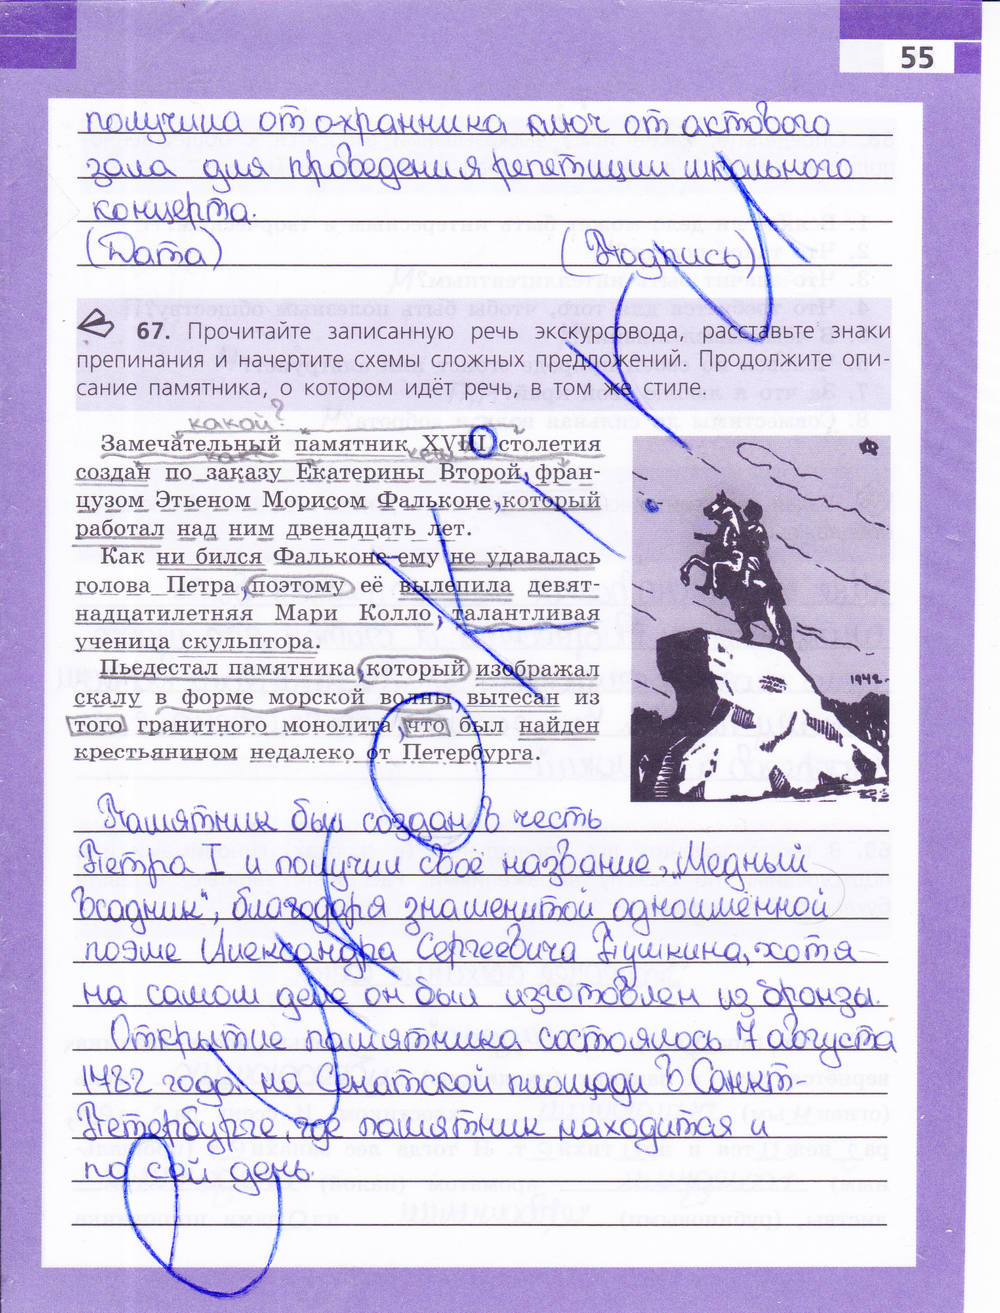 55
получила от охранника ключ от актового
зала для проведения репетиции школьного
концерта.
(Дата) (Подпись)
67. Прочитайте записанную речь экскурсовода, расставьте знаки
препинания и начертите схемы сложных предложений. Продолжите опи-
сание памятника, о котором идёт речь, в том же стиле.
какой?
Замечательный памятник XVIII столетия
создан по заказу Екатерины Второй, фран-
цузом Этьеном Морисом Фальконе, который
работал над ним двенадцать лет.
Как ни бился Фальконе ему не удавалась
голова Петра, поэтому её вылепила девят-
надцатилетняя Мари Колло, талантливая
ученица скульптора.
Пьедестал памятника, который изображал
скалу в форме морской волны вытесан из
того гранитного монолита, что был найден
крестьянином недалеко от Петербурга.
1942.
Памятник был создан в честь
Петра I и получил своё название, „Медный
всадник", благодаря знаменитой одноимённой
поэме Александра Сергеевича Пушкина, хотя
на самом деле он был изготовлен из бронзы.
Открытие памятника состоялось 7 августа
1782 года на Сенатской площади в Санкт-
Петербурге, где памятник находится и
по сей день.